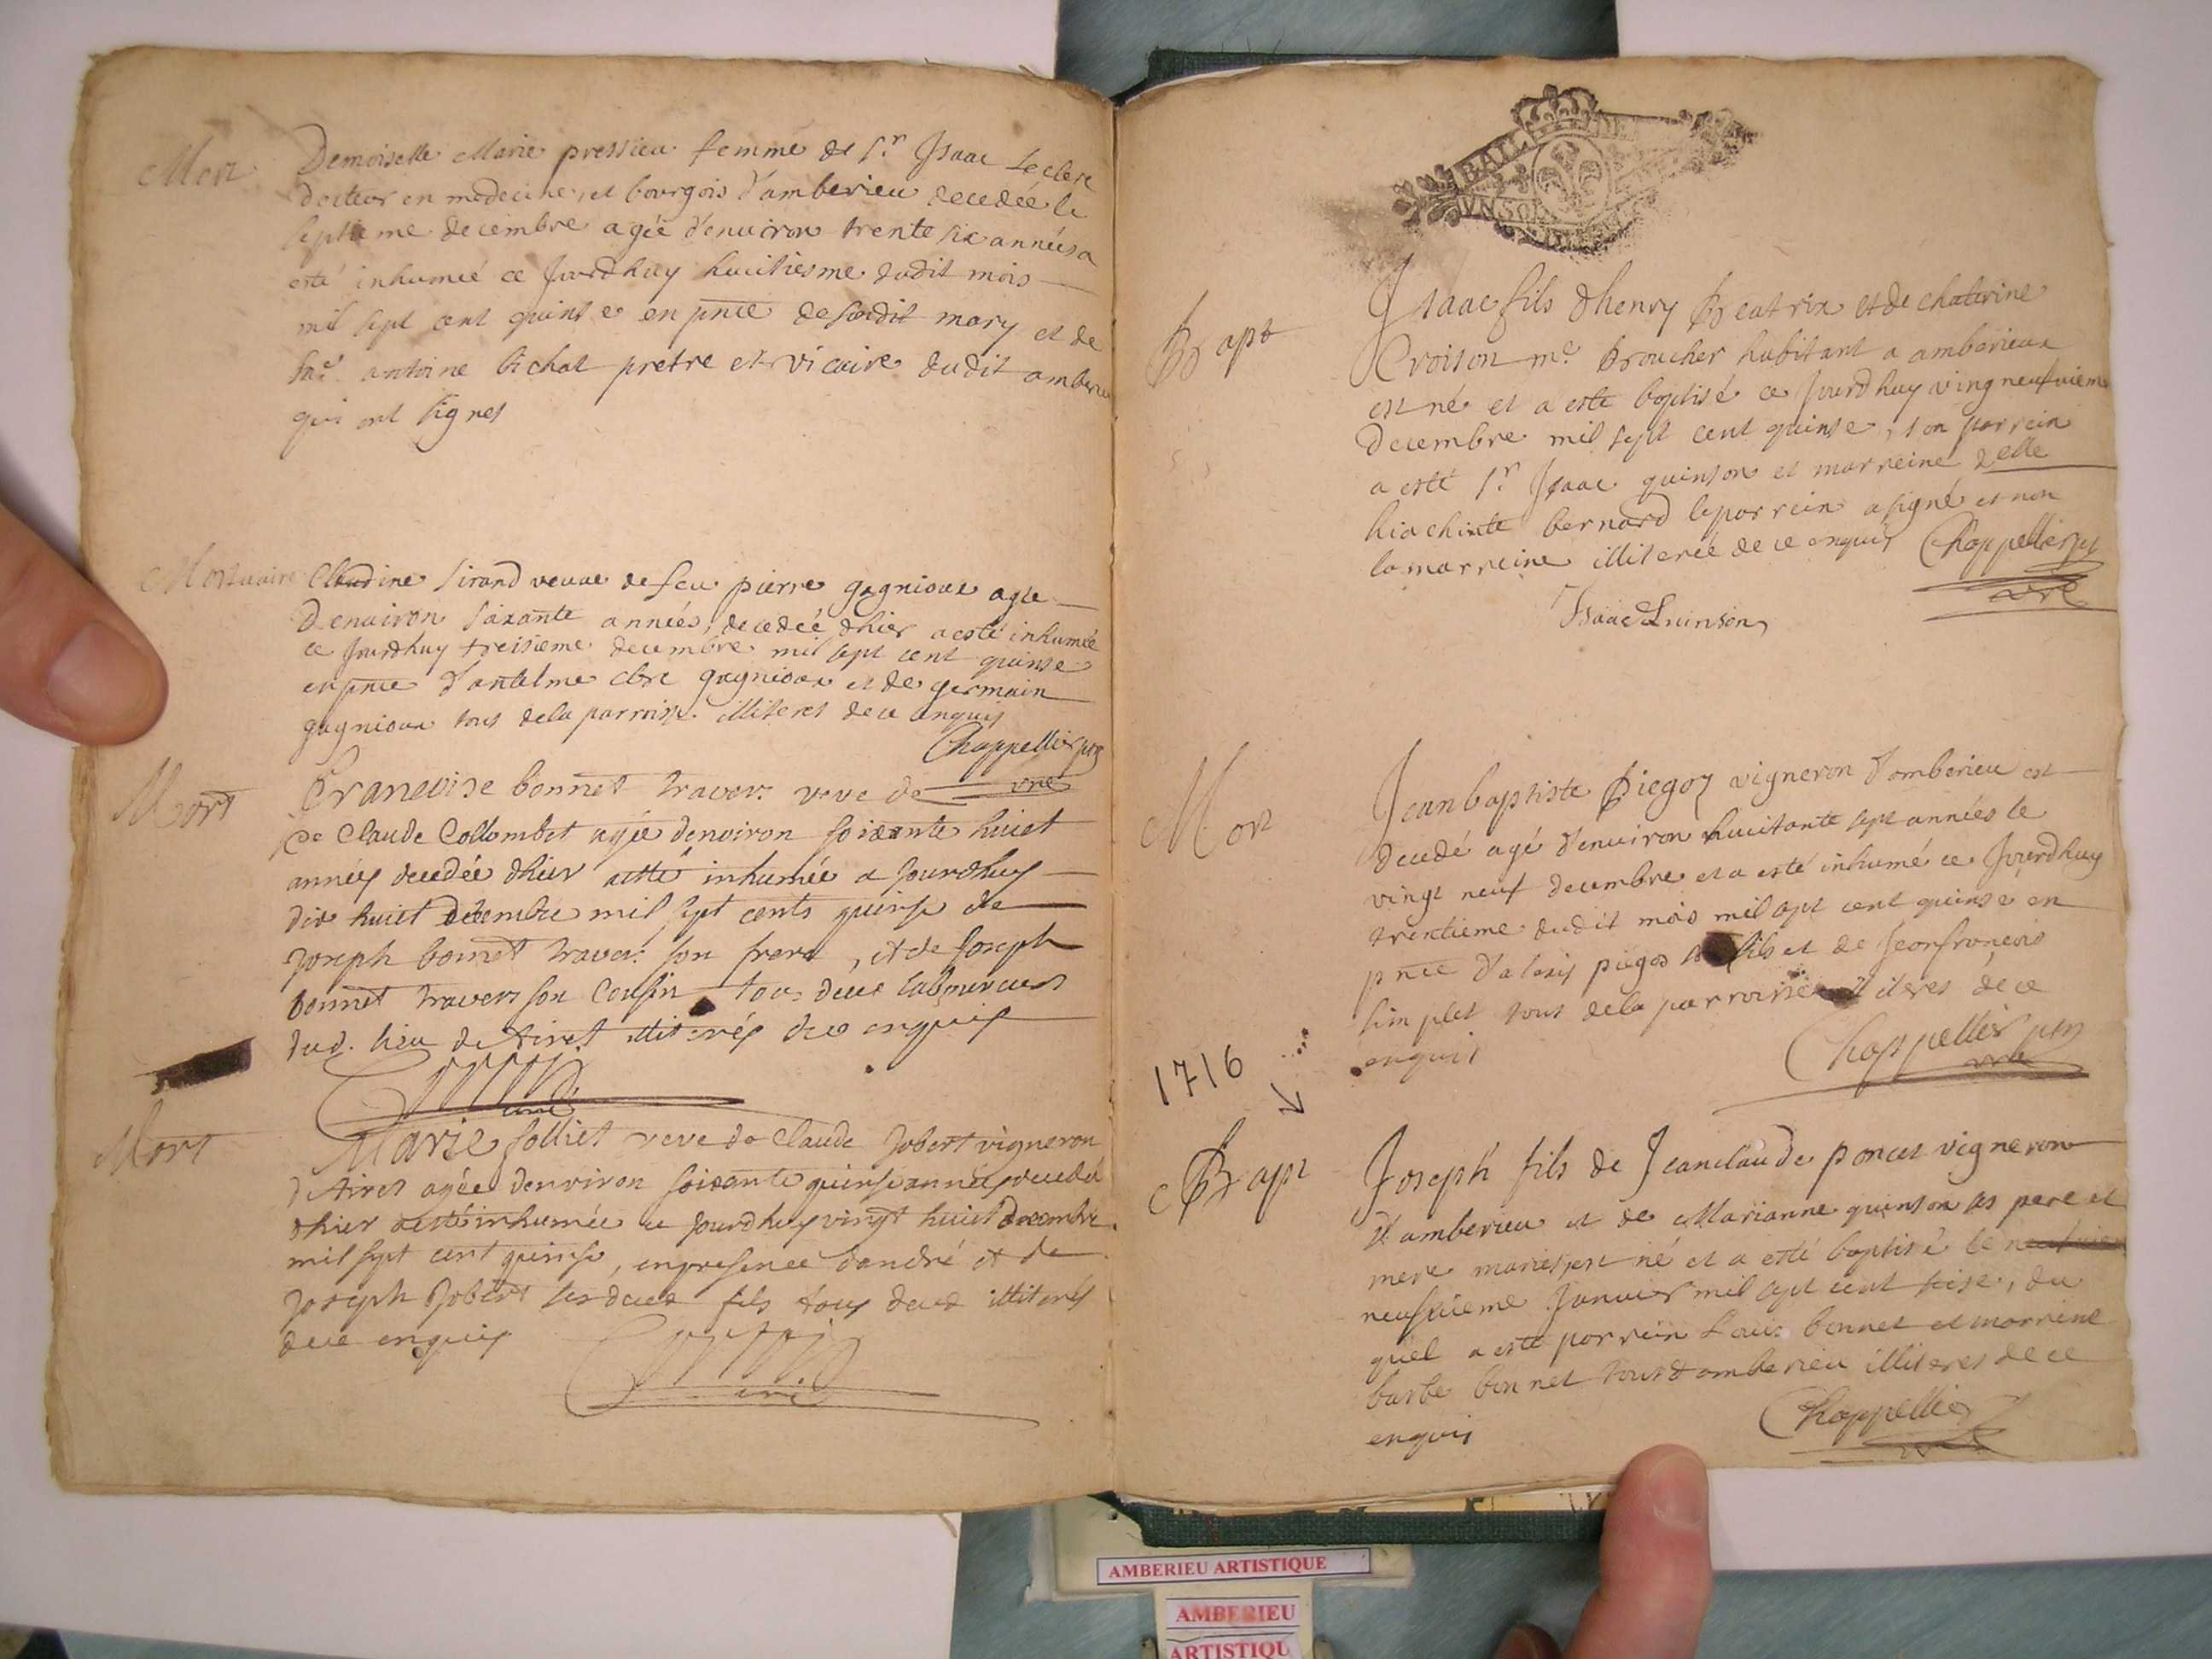 Mort
Demoiselle Marie pressieu femme de Sr Isaac Leclerc
docteur en medecine, et bourgois d'amberieu decedée le
septieme decembre agée d'environ trente six années a
esté inhumée ce Jourdhuy huitiesme dudit mois
mil sept cent quinse en pnce de sondit mary et de
antoine bichat pretre et vicaire dudit amberieu
qui ont signes
Mortuaire
Claudine Sirand veuue de feu pierre gagnioux agée
Denuiron soixante années, decedée dhier a esté inhumée
ce Jourdhuy treisieme decembre mil sept cent quinse
en pnce d'antelme gagnioux et de germain
gagnioux tous dela parroisse illiteres de ce enquis
Chappellier
Mort
Francoise bonnet travers veve de
de Claude Collombet agée denviron soixante huict
années decedée dhier a esté inhumée a Jourdhuy
dix huict decembre mil sept cents quinse de
Joseph bonnet travers son frere, et de Joseph
bonnet travers son Cousin tous deux laboureurs
dud. lieu de tiret illiterés de ce enquis
curé
Mort
Marie Jolliet veve de Claude Jobert vigneron
de tiret agée denviron soixante quinse années decedée
dhier a esté inhumée ce Jourdhuy vingt huict decembre
mil sept cent quinse, en presence dandré et de
Joseph Jobert ses deux fils tous deux illiterés
de ce enquis
curé
BAIL DE
UN SOL
Bapt
Isaac fils dhenry Beatrix et de chaterine
Croison me Broucher habitant a amberieux
est né et a esté baptisé ce Jourdhuy ving neufuieme
Decembre mil sept cent quinse, son parrein
a esté Sr Isaac quinson et marreine delle
hiachinte bernard le parrein a signé et non
la marreine illiterée de ce enquis Chappellier
Isaac Quinson
Mort
Jean baptiste Piegoy vigneron d'amberieu est
decedé agé d'enuiron huitante sept années le
vingt neuf decembre et a esté inhumé ce Jourdhuy
trentieme dudit mois mil sept cent quinse en
pnce d'alexis fils et de Jeanfrancois
simplet tous dela parroisse illiteres de ce
enquis
Chappellier
1716
Bapt
Joseph fils de Jeanclaude poncet vigneron
d'amberieu et de Marianne quinson ses pere et
mere mariés est né et a esté baptisé le
neufuieme Januier mil sept cent seise, du
quel a esté parrein Louis bonnet et marreine
barbe bonnet tous d'amberieu illiteres de ce
enquis
Chappellier
AMBERIEU ARTISTIQUE
AMBERIEU
ARTISTIQU